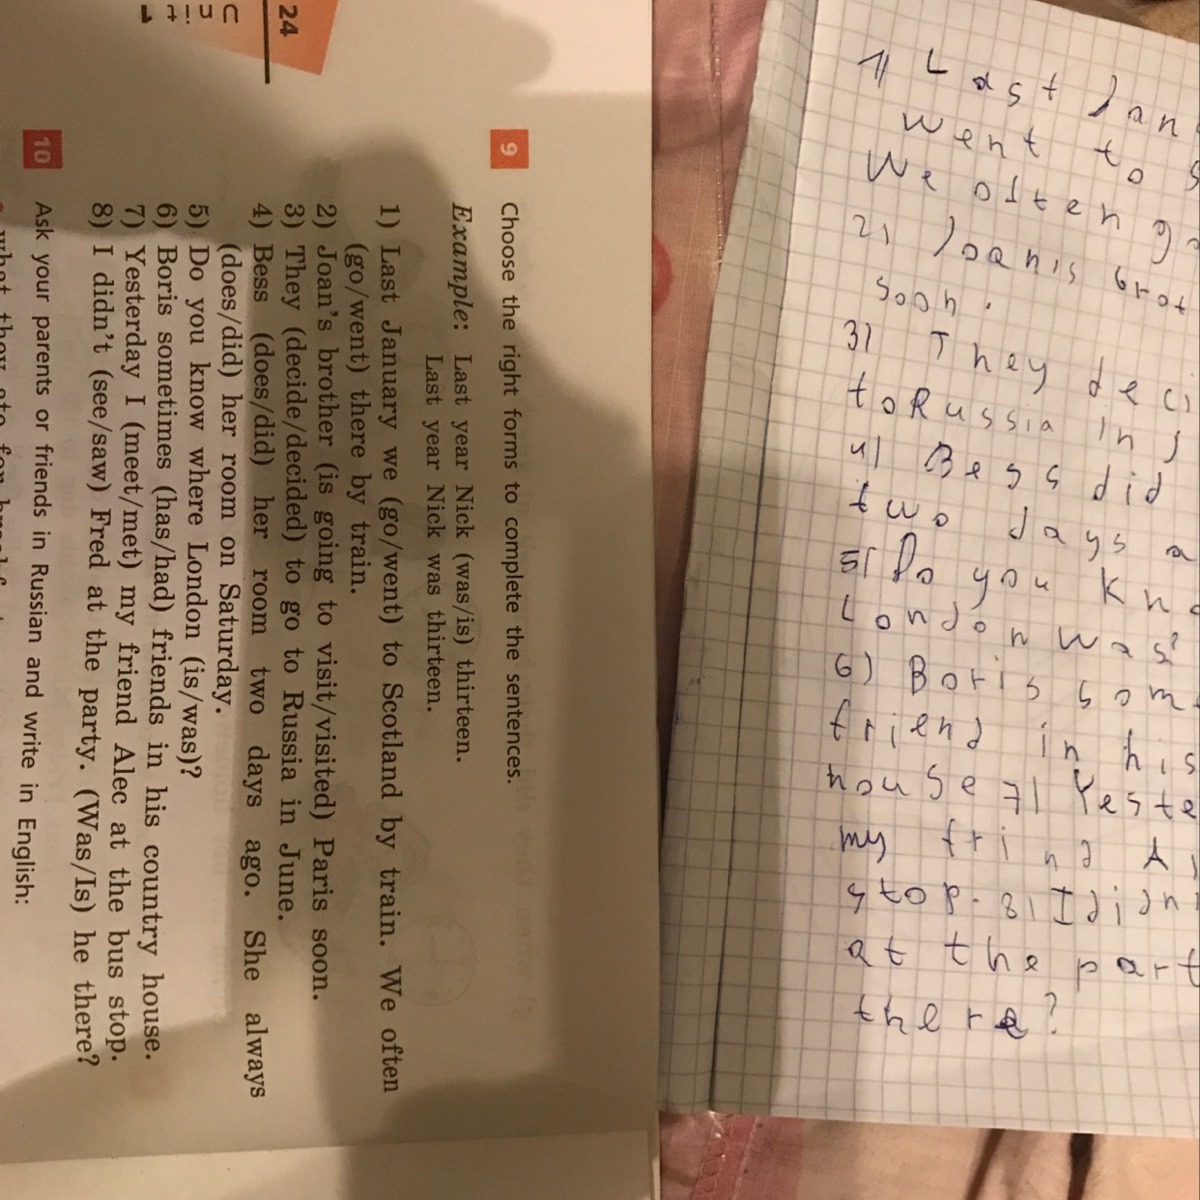 24
9 Choose the right forms to complete the sentences.
Example: Last year Nick (was/is) thirteen.
Last year Nick was thirteen.
1) Last January we (go/went) to Scotland by train. We often
(go/went) there by train.
2) Joan's brother (is going to visit/visited) Paris soon.
3) They (decide/decided) to go to Russia in June.
4) Bess (does/did) her room two days ago. She always
(does/did) her room on Saturday.
5) Do you know where London (is/was)?
6) Boris sometimes (has/had) friends in his country house.
7) Yesterday I (meet/met) my friend Alec at the bus stop.
8) I didn't (see/saw) Fred at the party. (Was/Is) he there?
10 Ask your parents or friends in Russian and write in English:
what they ate for
1) Last Jan
went to S
We often g
2) Joanis brot
soon.
3) They deci
to Russia in J
4) Bess did
two days a
5) Do you kn
London was?
6) Boris som
friend in his
house 7) Yeste
my frind A
stop. 8) I didn
at the part
there?